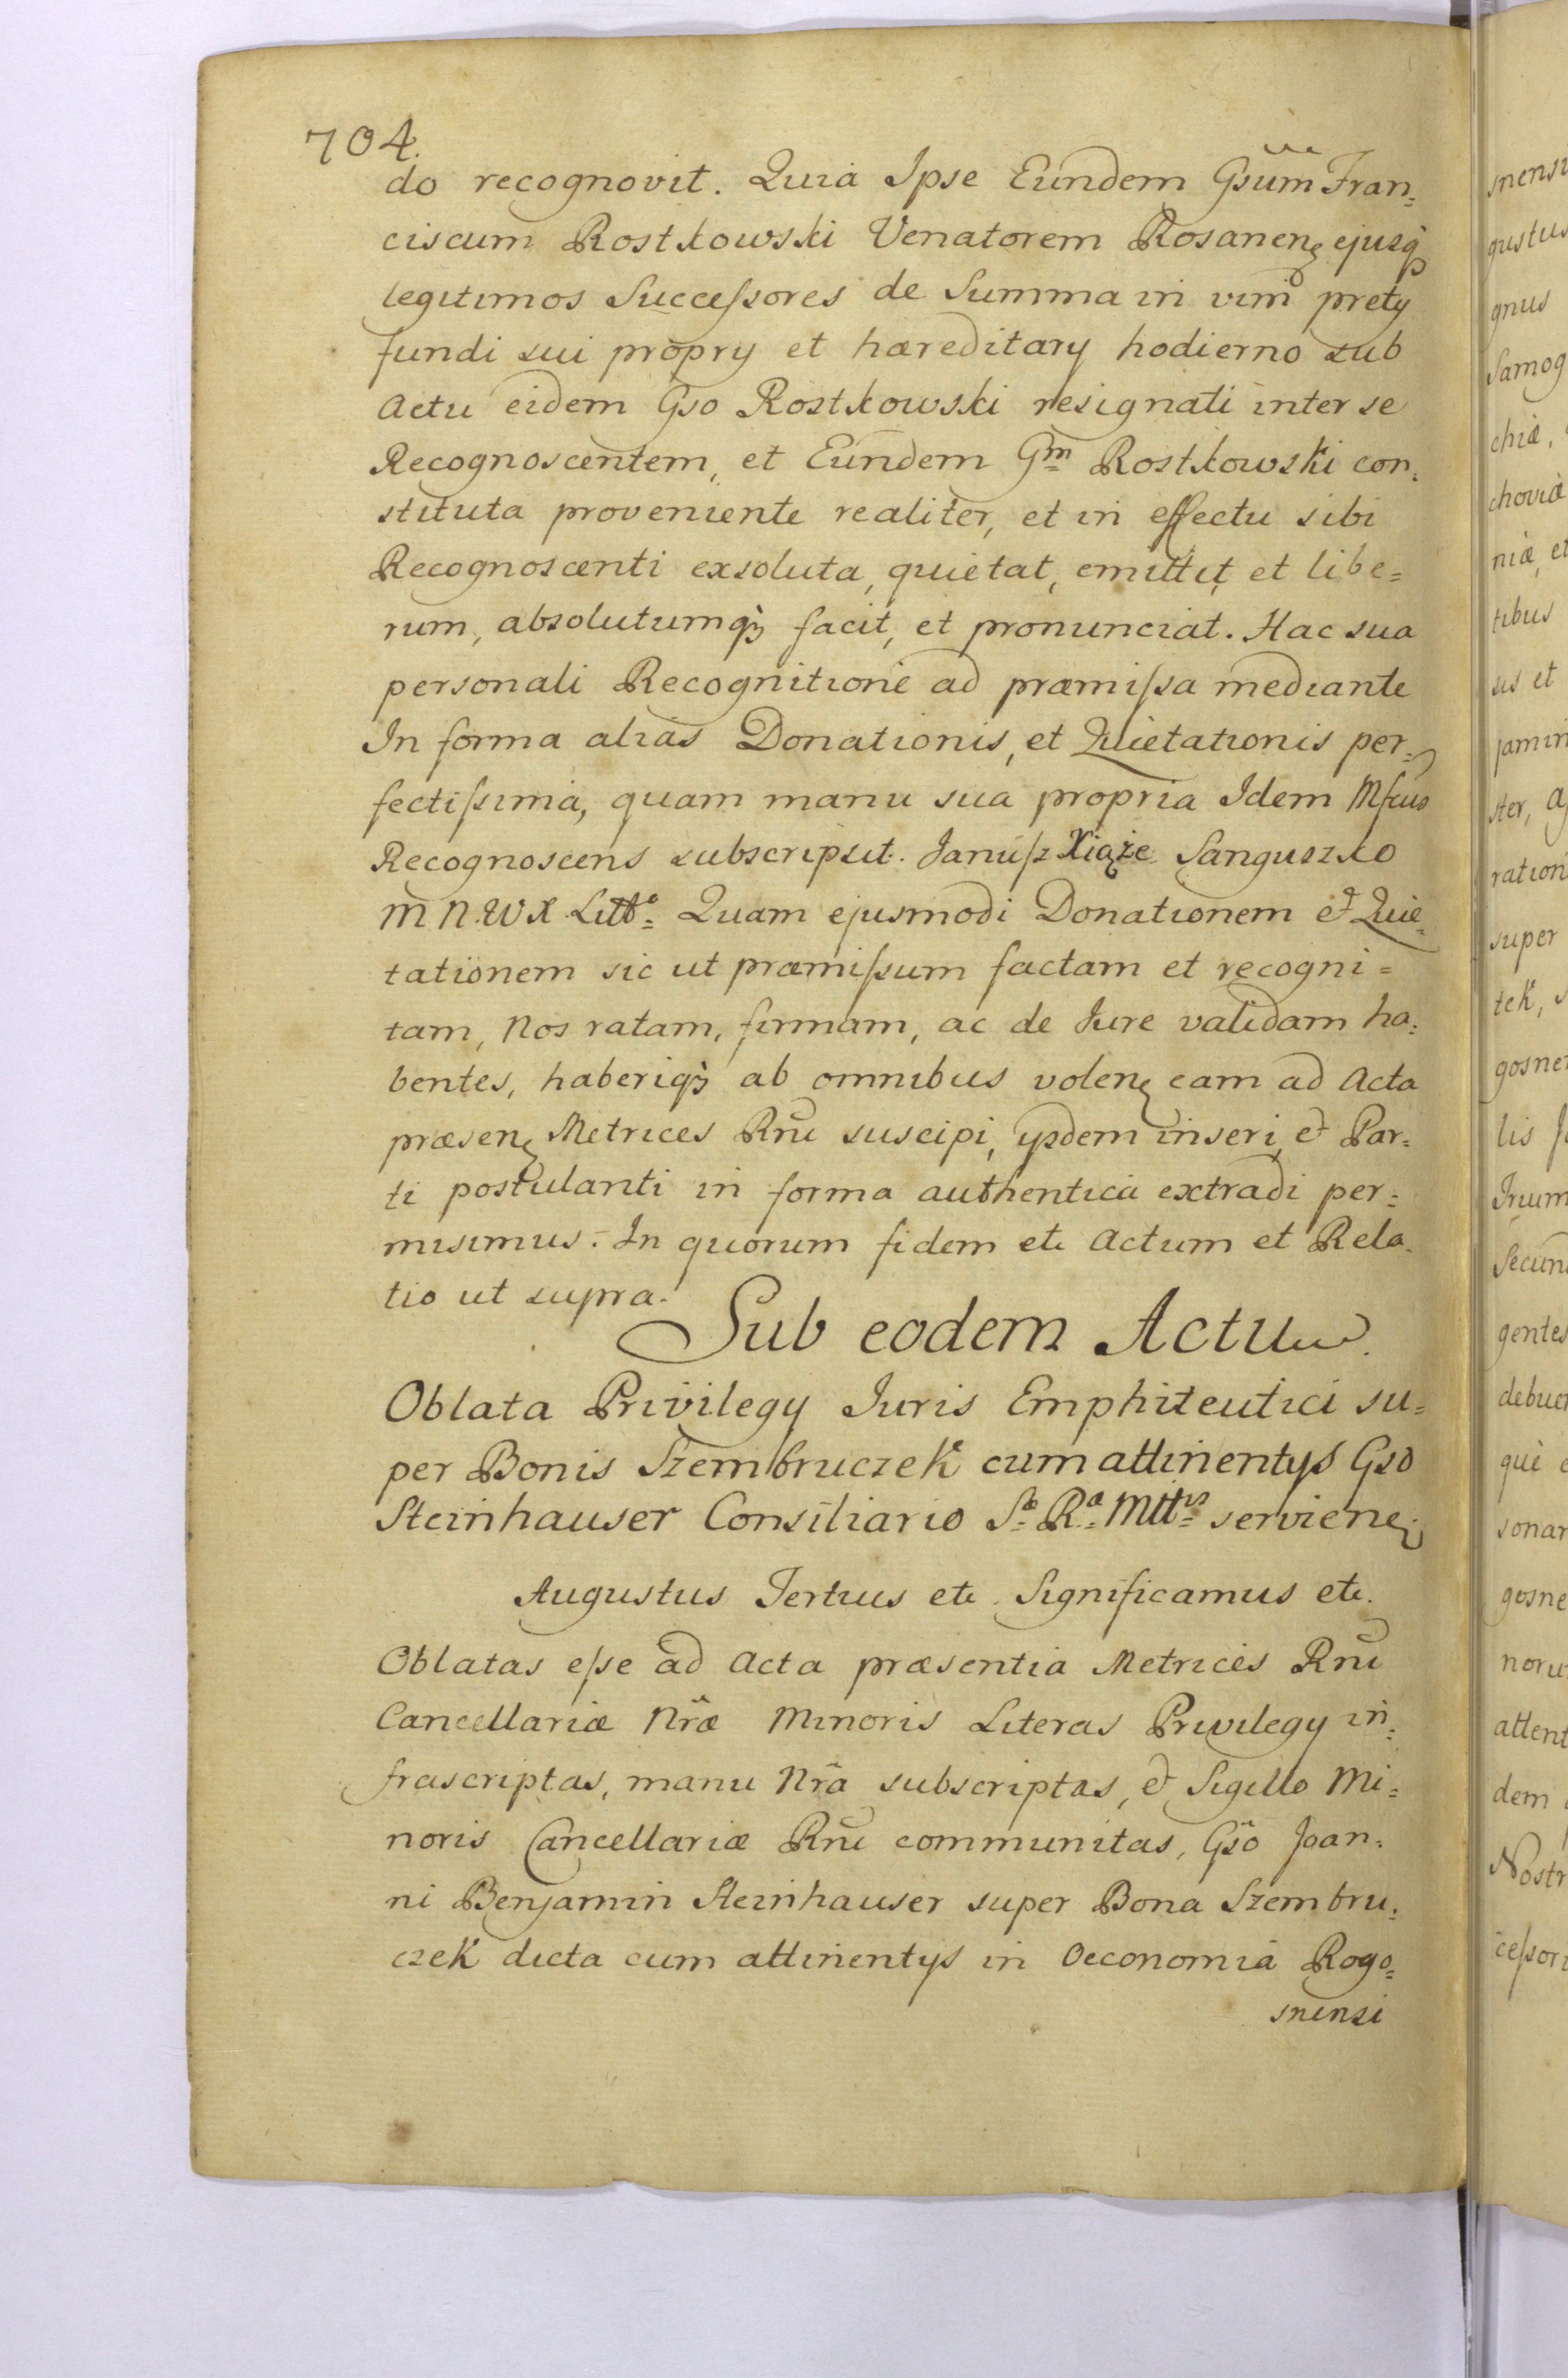 704.
do recognovit. Quia Ipse Eundem Gsũm Fran=
ciscum Rostkowski Venatorem Rosanen ejusq́
legitimos Succeſsores de Summa in vim prety
fundi sui propry et hæreditary hodierno sub
Actu eidem Gso Rostkowski resignati inter se
Recognoscentem, et Eundem Gm Rostkowski con=
stituta proveniente realiter, et in effectu sibi
Recognoscenti exsoluta, quietat, emittit, et libe=
rum, absolutumq̀ facit, et pronunciat. Hac sua
personali Recognitione ad præmiſsa mediante
In forma alias Donationis, et Quietationis per=
fectiſsima, quam manu sua propria Idem Mfcus
Recognoscens subscripsit. Januſz Xiąże Sanguszko
M N. W X Litte. Quam ejusmodi Donationem et Quie=
tationem sic ut præmiſsum factam et recogni=
tam, Nos ratam, firmam, ac de Iure validam ha=
bentes, haberiq̀ ab omnibus volen eam ad Acta
præsen Metrices Rñi suscipi, ysdem inseri, et Par=
ti postulanti in forma authentica extradi per=
misimus. In quorum fidem etc Actum et Rela=
tio ut supra.
Sub eodem Actu.
Oblata Privilegy Iuris Emphiteutici su=
per Bonis Szembruczek cum attinentys Gso
Steinhauser Consiliario Sæ Ræ Mttis servien
Augustus Tertius etc. Significamus etc.
Oblatas eſse ad Acta præsentia Metrices Rñi
Cancellariæ Nr̃æ Minoris Literas Privilegy in=
frascriptas, manu Nr̃a subscriptas, et Sigillo Mi=
noris Cancellariæ Rñi communitas, Gs̃o Joan=
ni Benjamin Steinhauser super Bona Szembru=
czek dicta cum attinentys in Oeconomia Rogo=
snensi